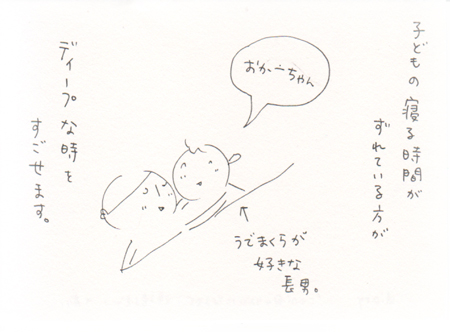 子どもの寝る時間が
ずれている方が
おかーちゃん
うでまくらが
好きな
長男。
ディープな時を
すごせます。